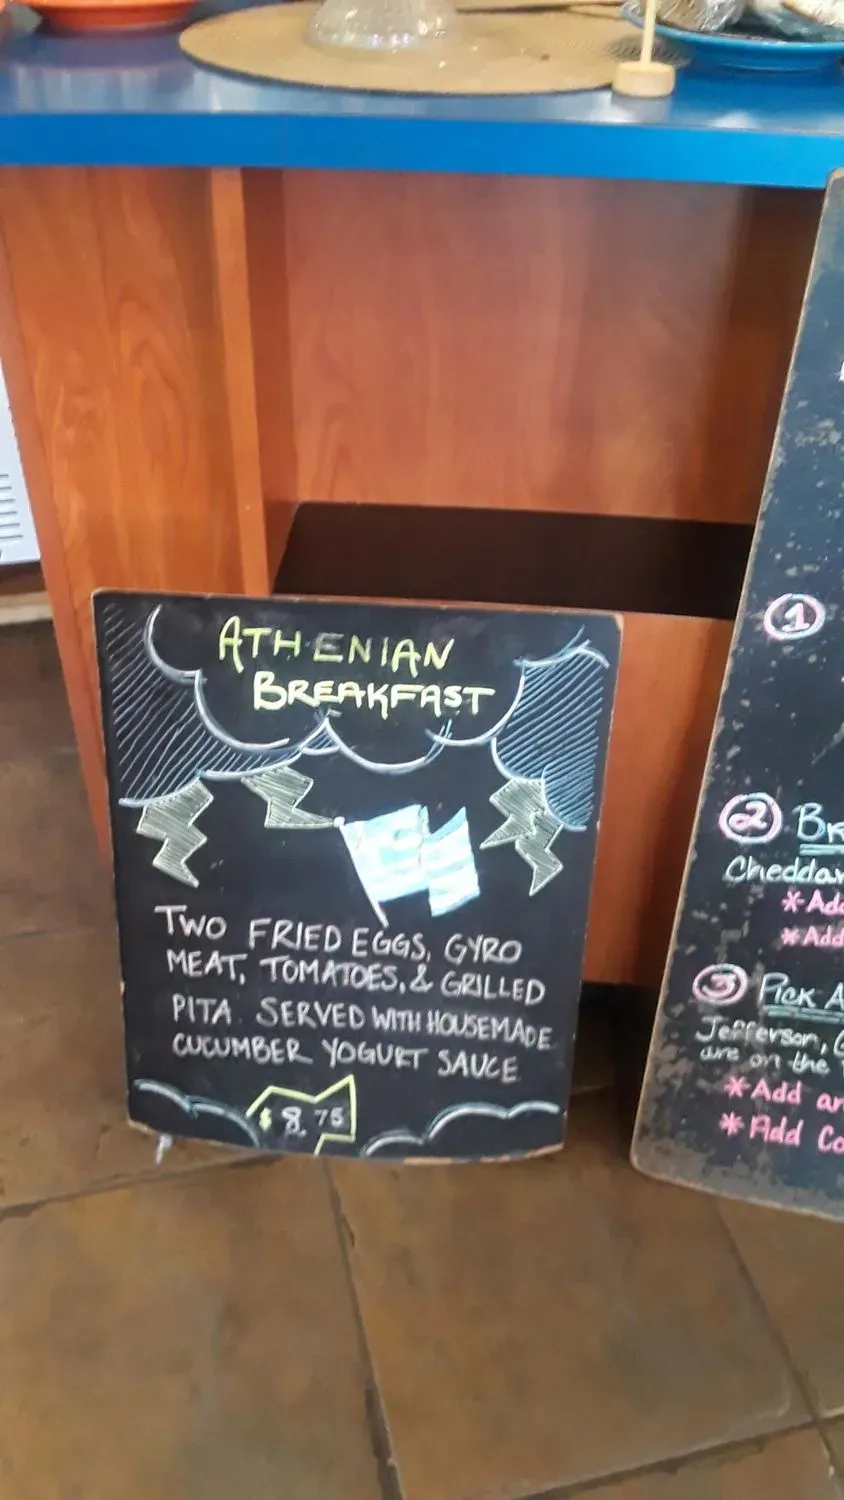 ATHENIAN
BREAKFAST
TWO FRIED EGGS, GYRO
MEAT, TOMATOES, & GRILLED
PITA. SERVED WITH HOUSEMADE
CUCUMBER YOGURT SAUCE
$8.75
1
2
Cheddar
* Add
* Add
3 PICK A
Jefferson,
are on the
* Add an
* Add Co